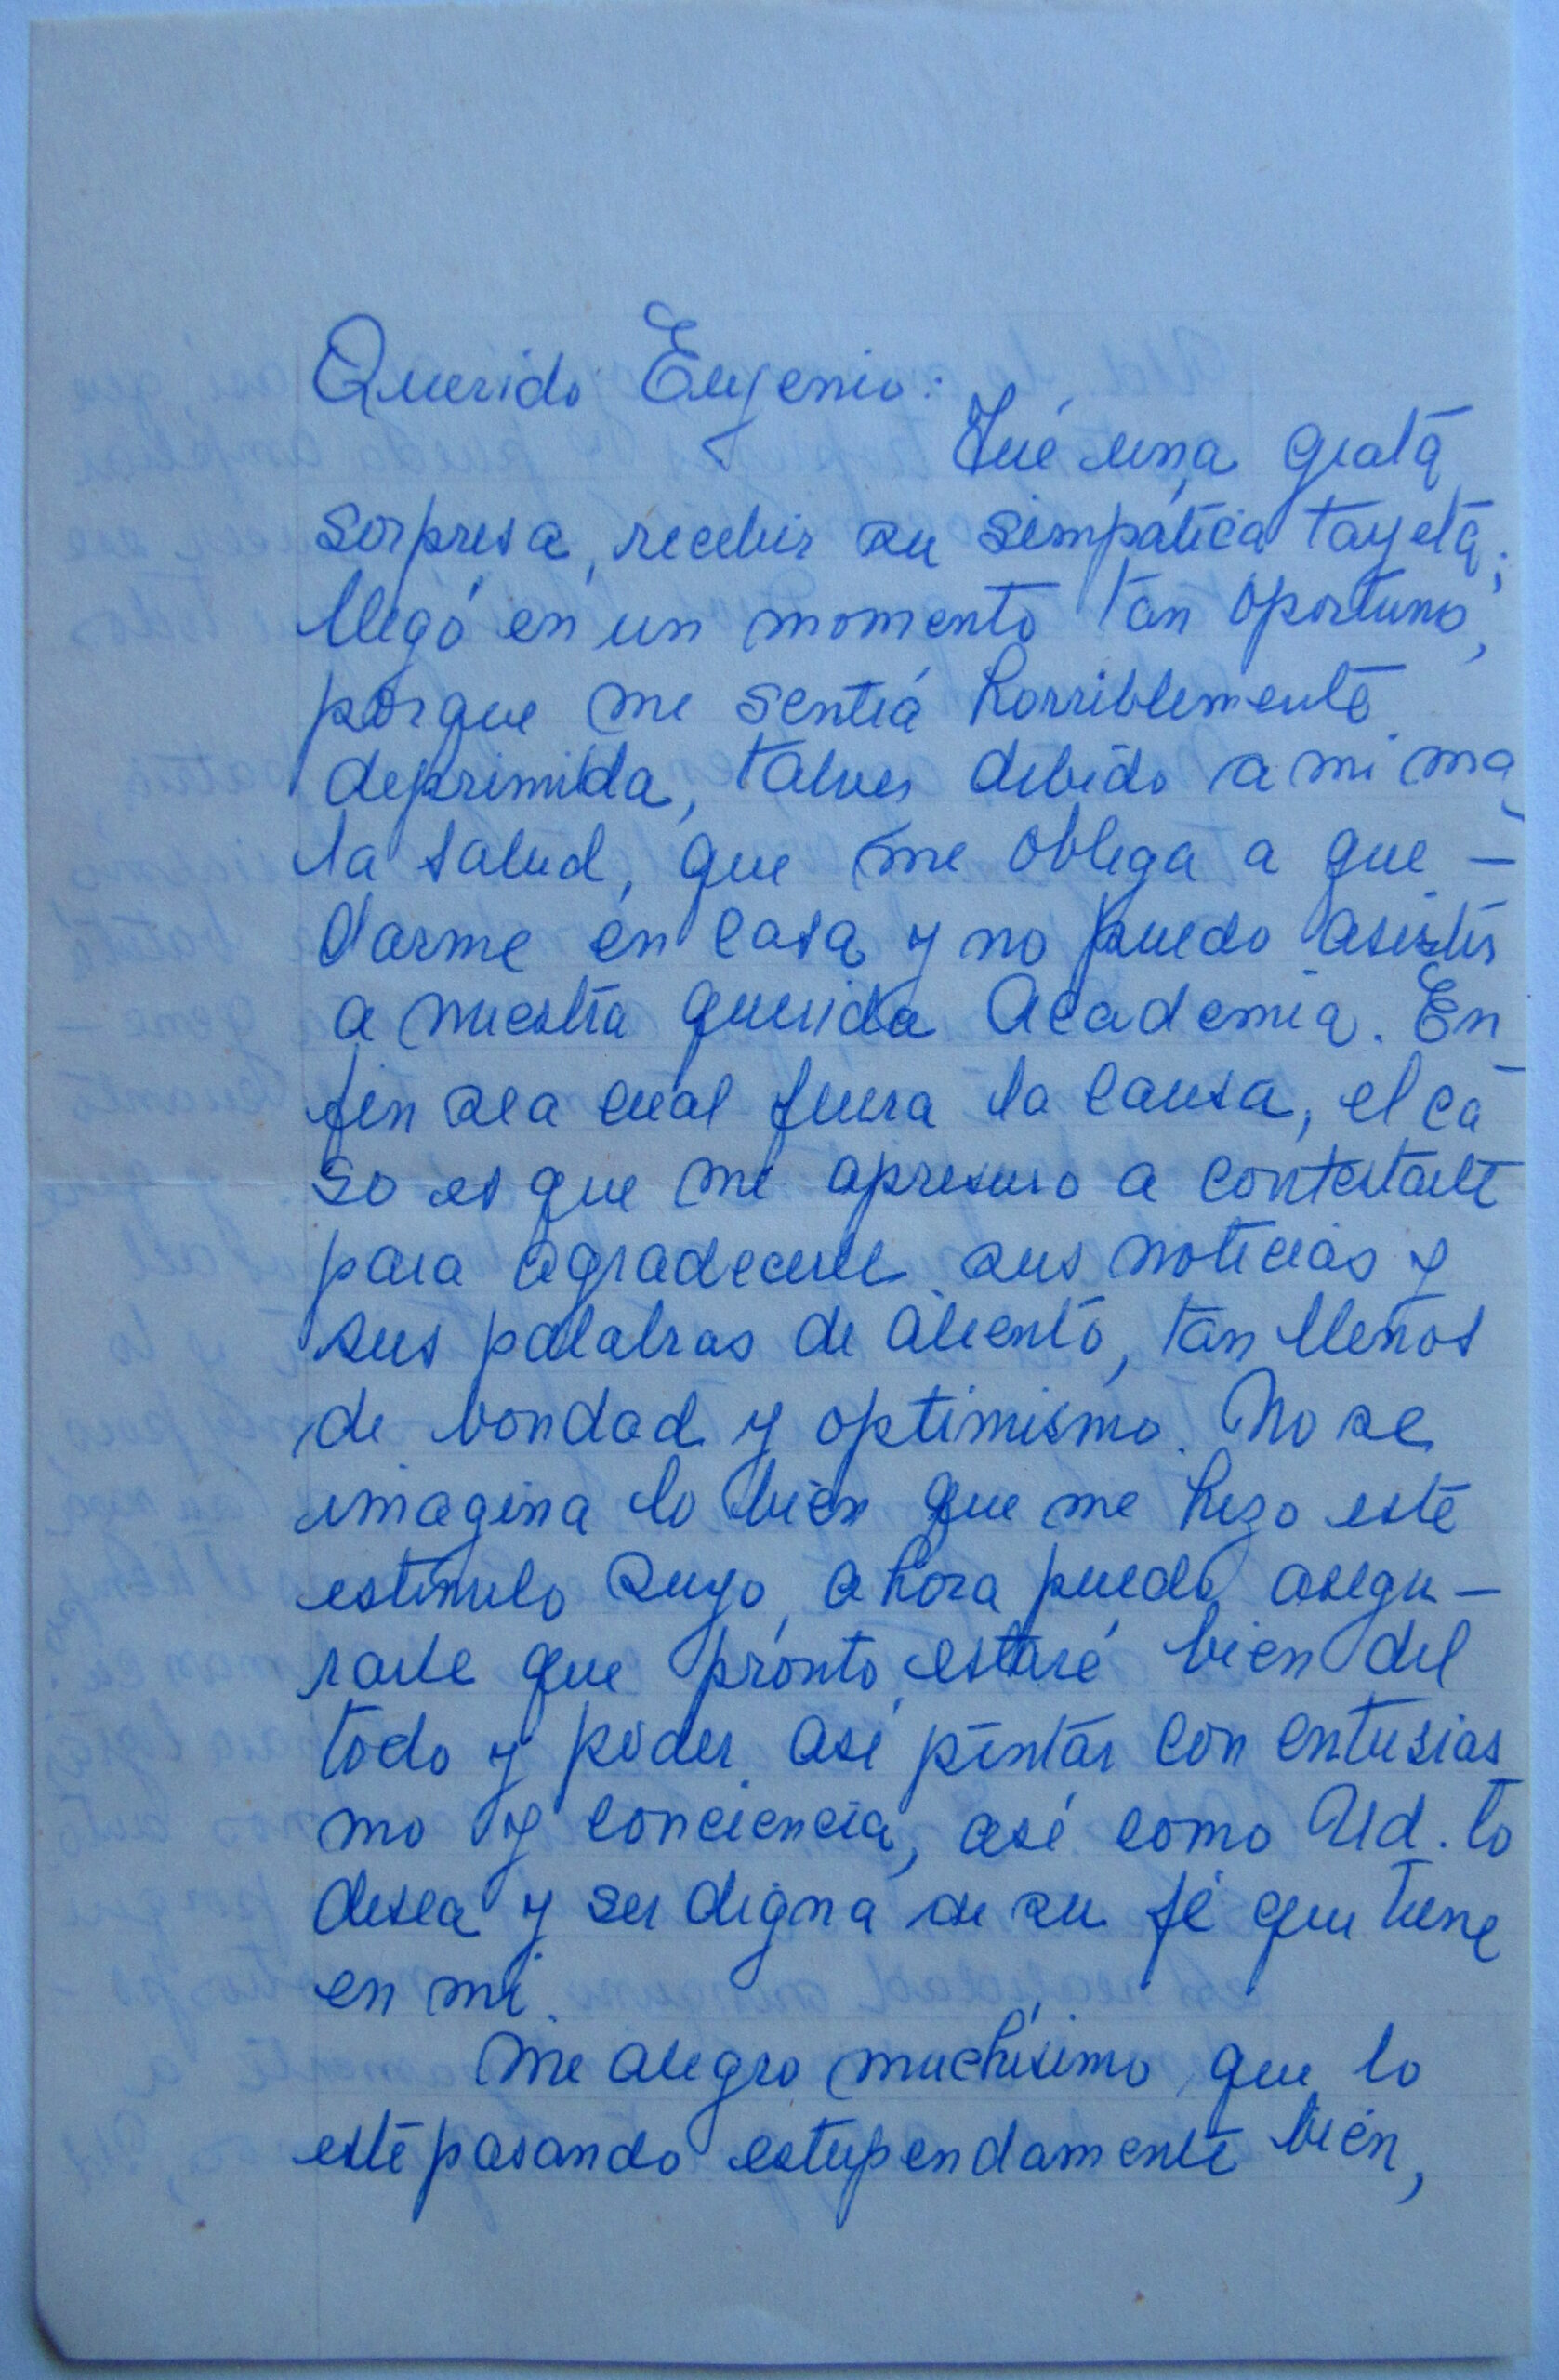 Querido Eugenio:
Fué una grata
sorpresa, recibir su simpática tarjeta;
llegó en un momento tan oportuno,
porque me sentiá horriblemente
deprimida, talves debido a mi ma
la salud, que me obliga a que -
darme en casa y no puedo asistir
a nuestra querida Academia. En
fin sea cual fuera la causa, el ca
so es que me apresuro a contestarle
para agradecerle sus noticias y
sus palabras de aliento, tan llenos
de bondad y optimismo. No se
imagina lo bien que me hizo este
estímulo suyo, ahora puedo asegu -
rarle que pronto estaré bien del
todo y poder así pintar con entusias
mo y conciencia, asé como Ud. lo
desea y ser digna de su fé que tiene
en mi.
Me alegro muchísimo que lo
esté pasando estupendamente bien,